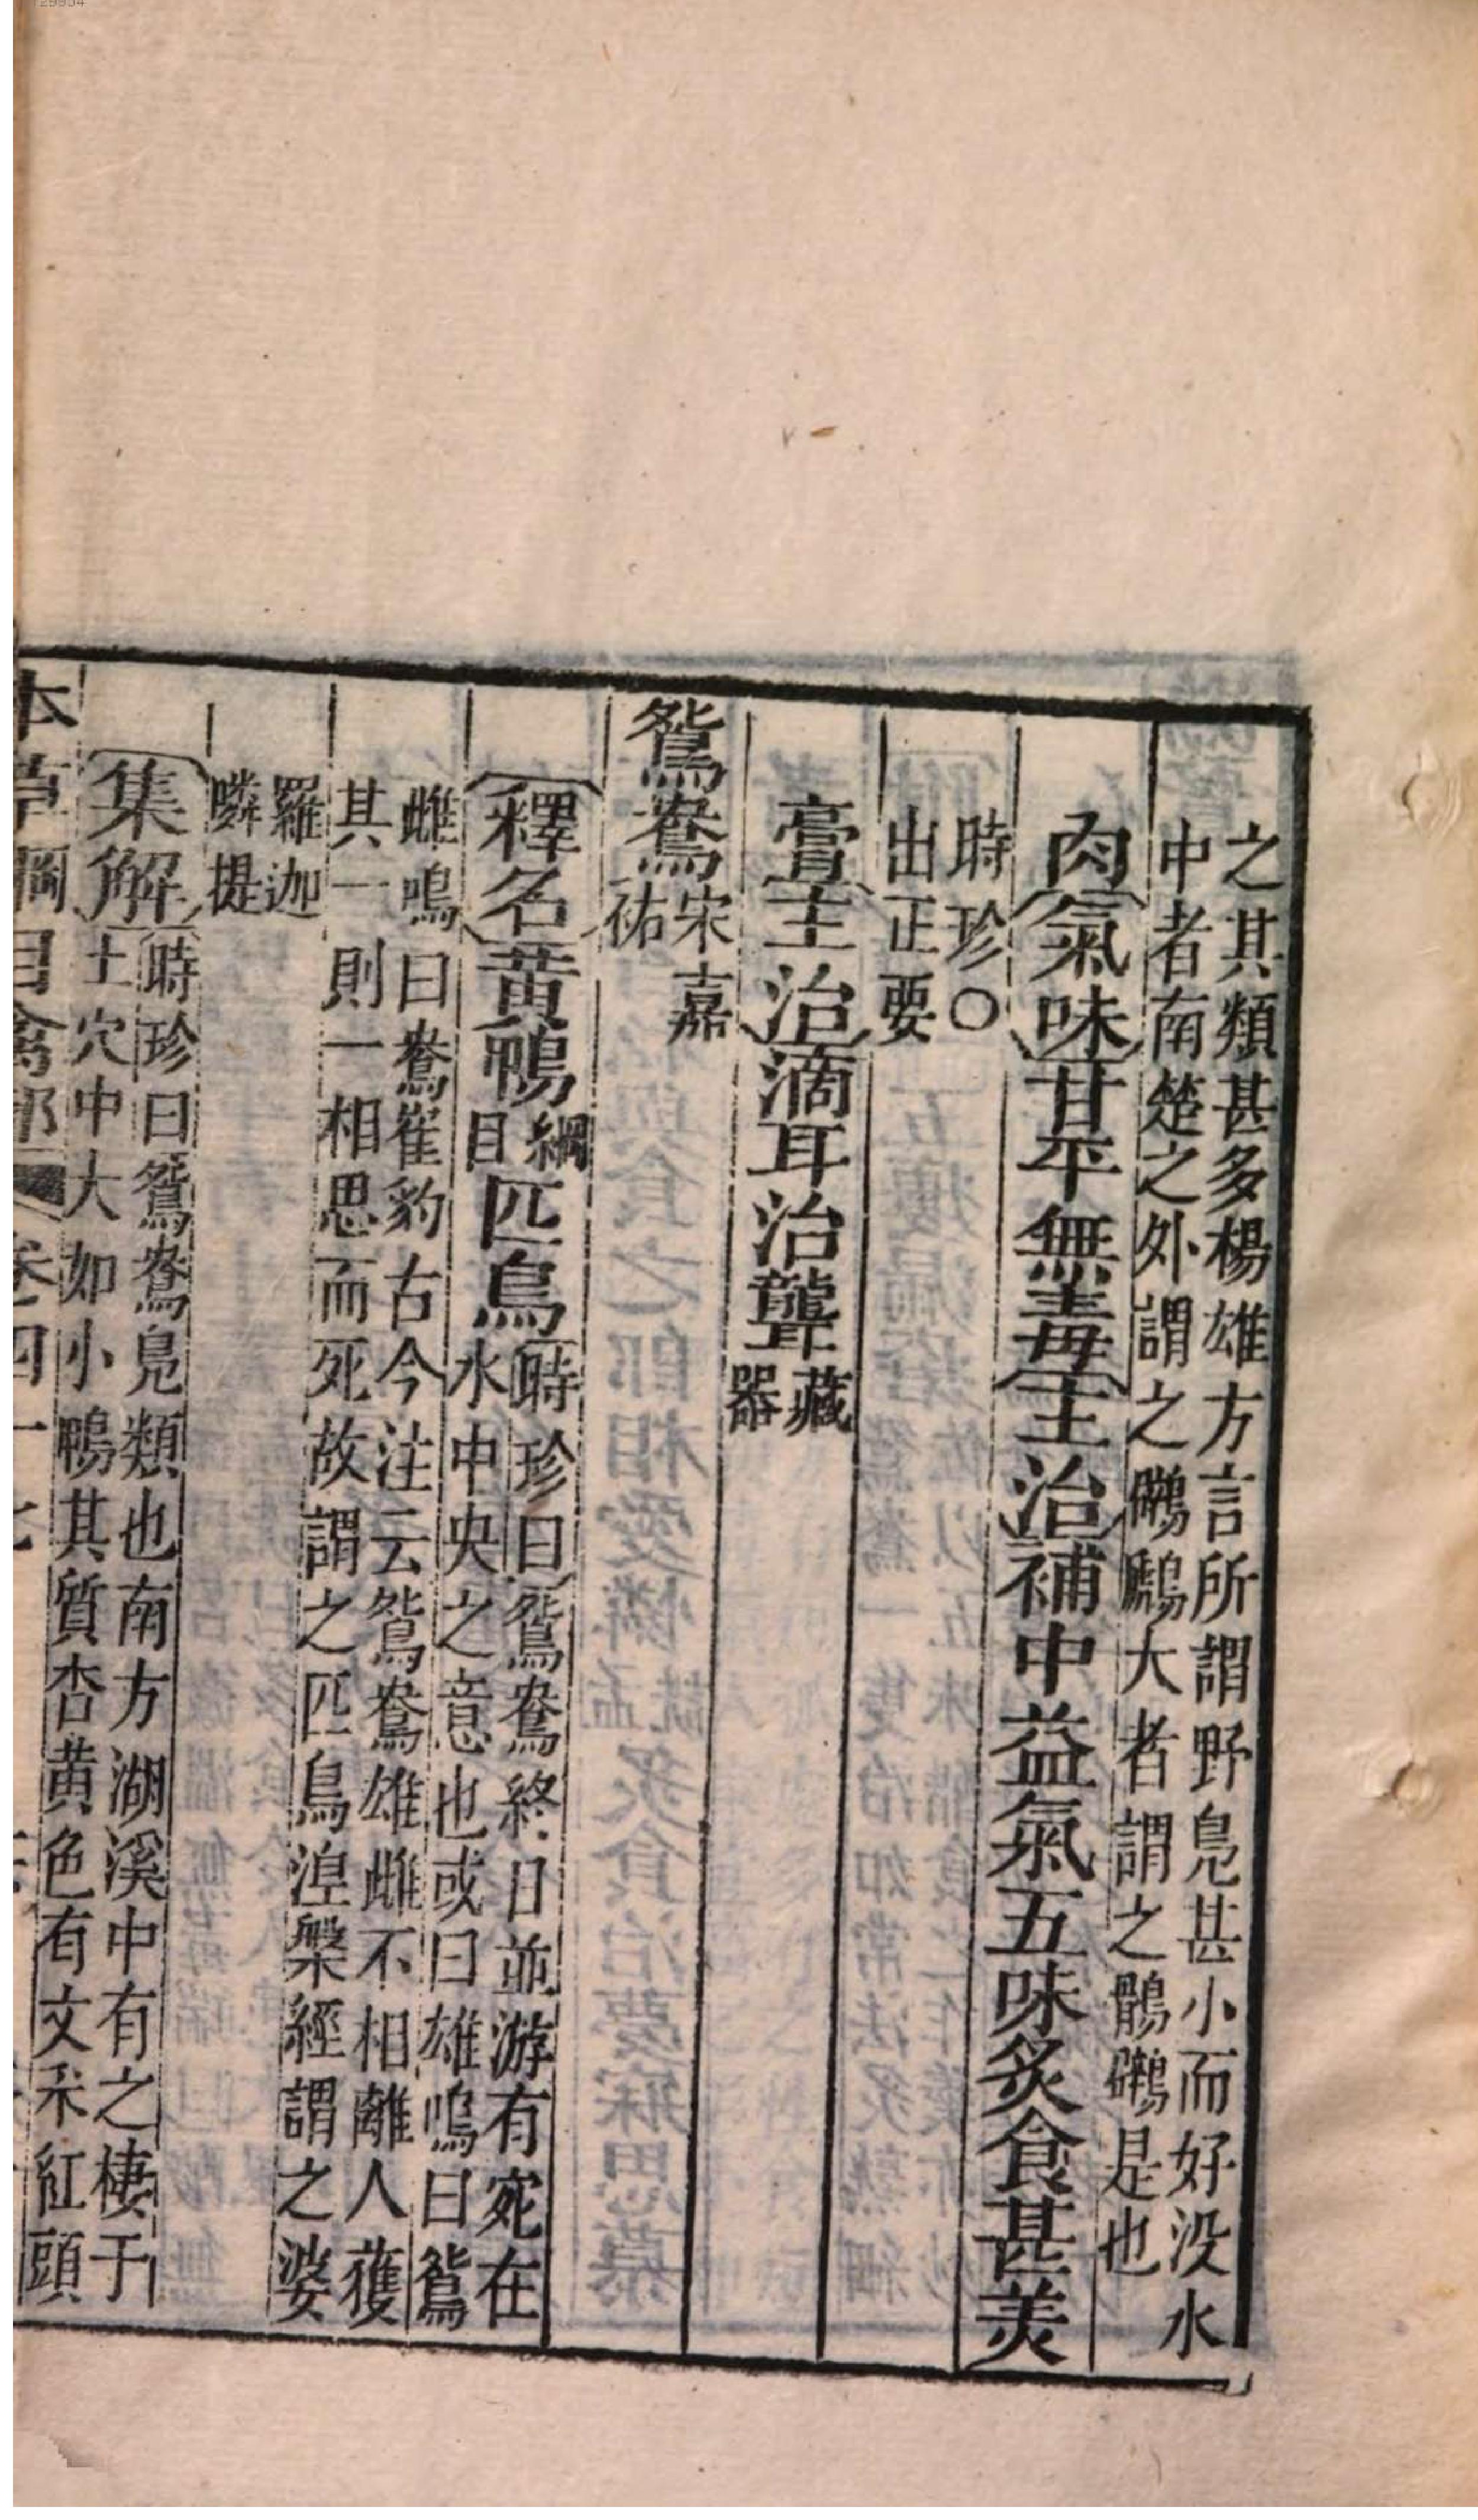 之其類甚多楊雄方言所謂野鳧甚小而好没水
中者南楚之外謂之鷿鷉大者謂之鶻鷉是也
肉氣味甘平無毒主治補中益氣五味炙食甚美
時珍〇
出正要
膏主治滴耳治聾藏器
鴛鴦宋嘉祐
釋名黄鴨綱目匹鳥時珍曰鴛鴦終日並游有宛在
水中央之意也或曰雄鳴曰鴛
雌鳴曰鴦崔豹古今注云鴛鴦雄雌不相離人獲
其一則一相思而死故謂之匹鳥涅槃經謂之婆
羅迦
嶙提
集解時珍曰鴛鴦鳧類也南方湖溪中有之棲于
土穴中大如小鴨其質杏黄色有文采紅頭
本草綱目禽部 卷四十七